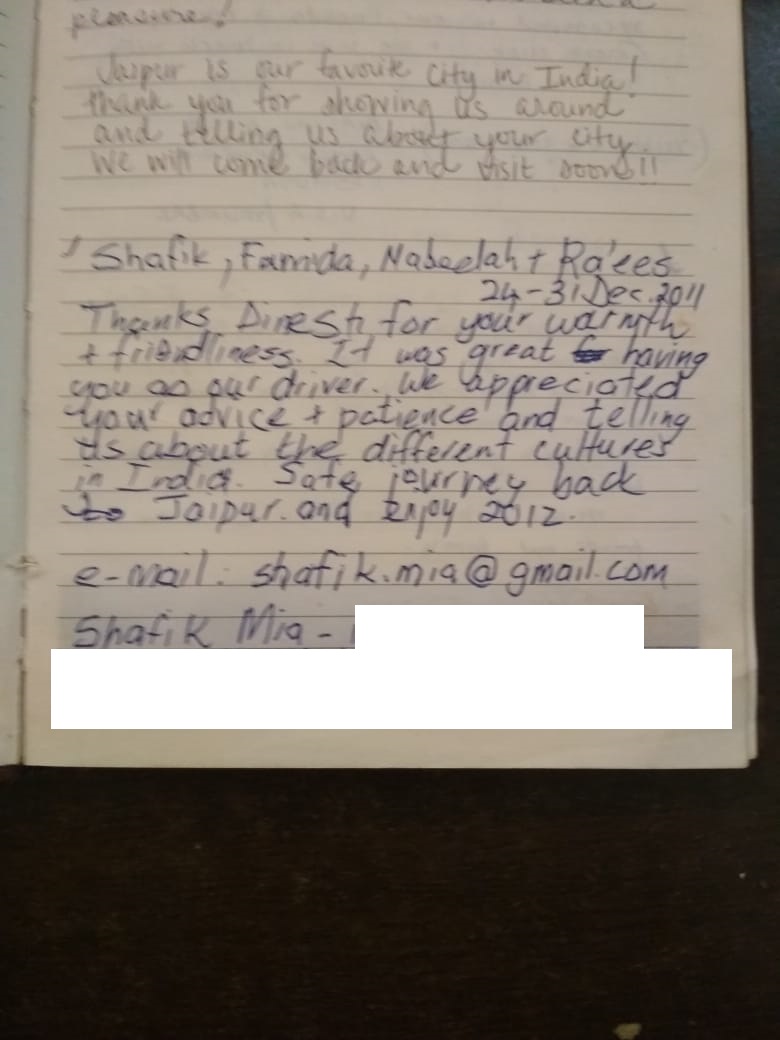 pleasure!
Jaipur is our favourite city in India!
thank you for showing us around
and telling us about your city.
We will come back and visit soon!!
Shafik, Famida, Nabeelah + Ra'ees
24-31 Dec. 2011
Thanks Dinesh for your warmth
+ friendliness. It was great having
you as our driver. We appreciated
your advice + patience and telling
us about the different cultures
in India. Safe journey back
to Jaipur. and enjoy 2012.
e-mail: shafik.mia@gmail.com
Shafik Mia -